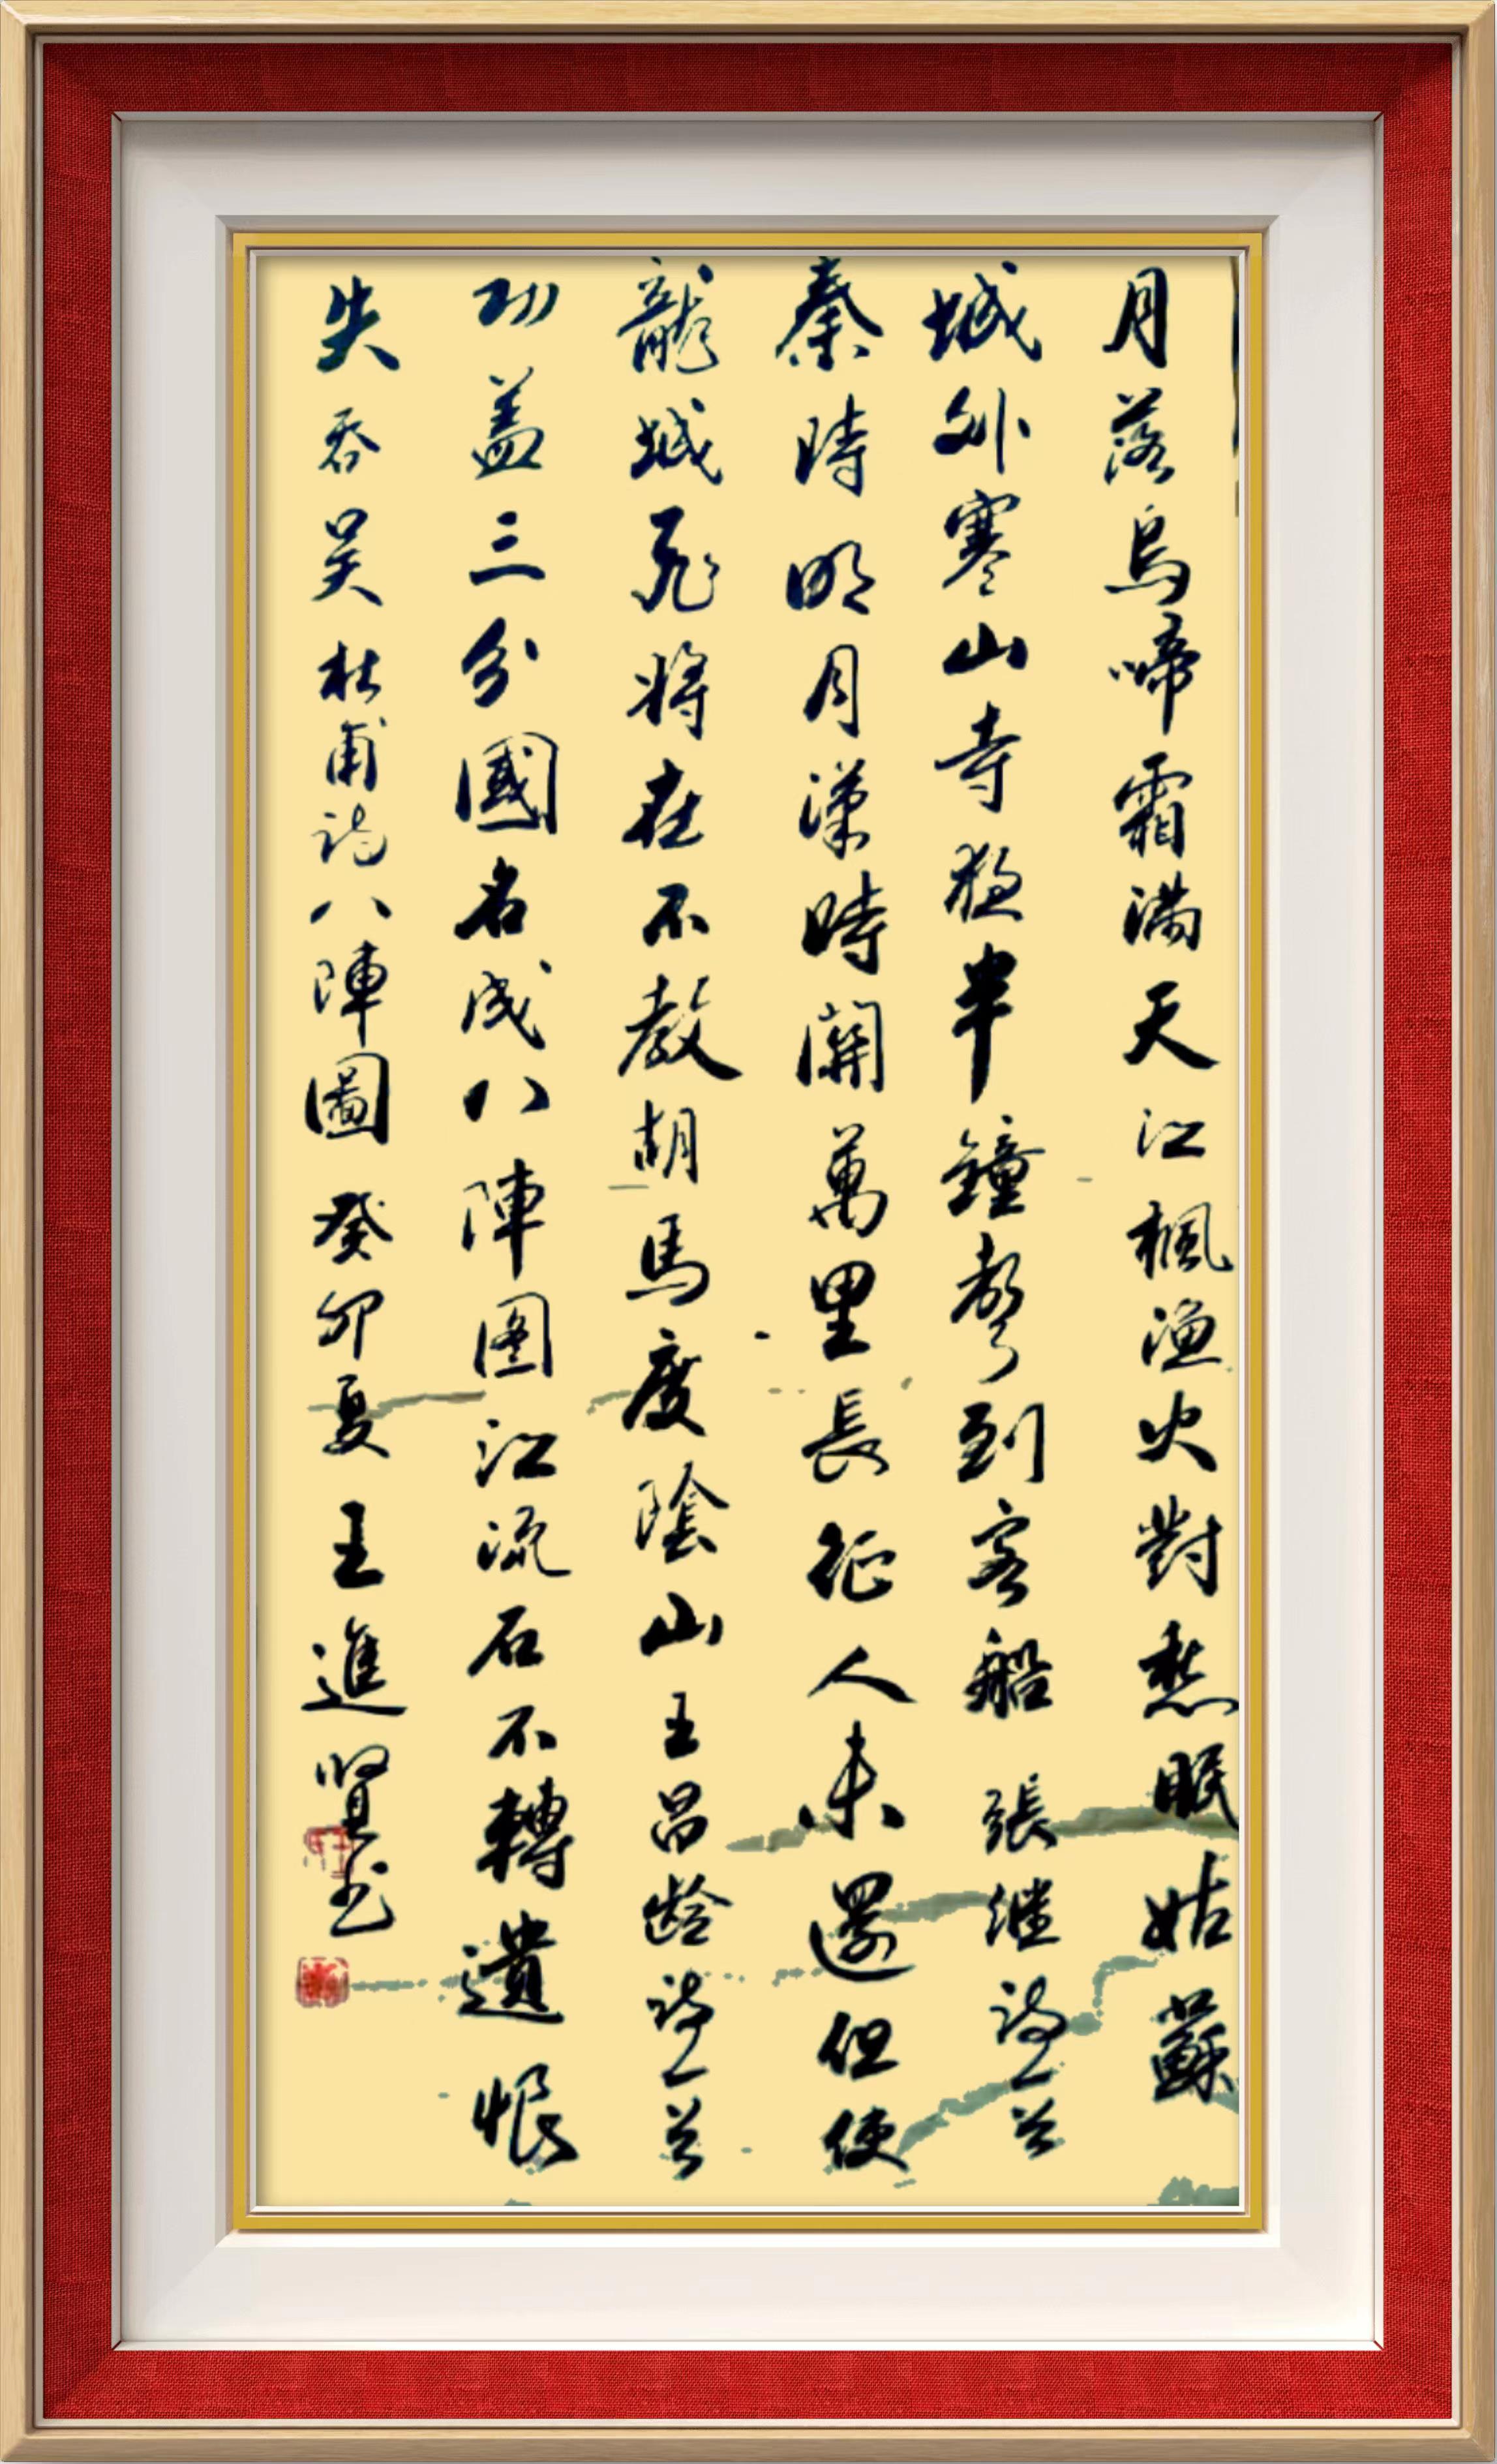 月落烏啼霜满天江楓渔火對愁眠姑蘇
城外寒山寺夜半鐘聲到客船張继诗一首
秦時明月漢時關萬里長征人未還但使
龍城飛将在不教胡馬度陰山王昌龄诗一首
功盖三分國名成八陣图江流石不轉遺恨
失吞吴杜甫诗八陣圖癸卯夏王進賢书